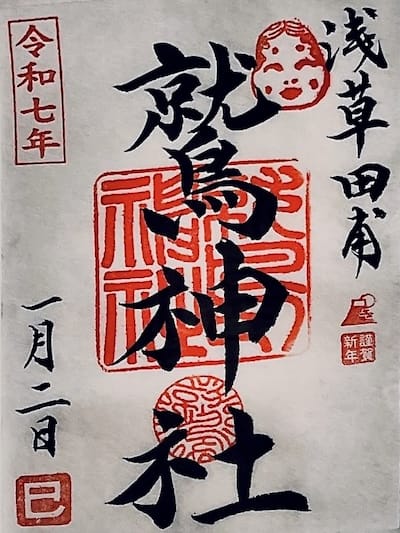 浅草田甫
謹賀
新年
鷲神社
鷲神社
令和七年
一月二日
巳